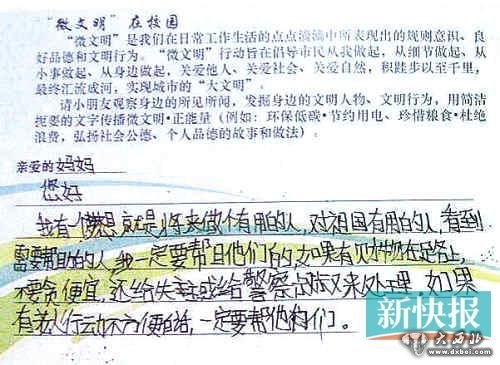 “微文明”在校园
“微文明”是我们在日常工作生活的点点滴滴中所表现出的规则意识、良
好品德和文明行为。“微文明”行动旨在倡导市民从我做起，从细节做起、从
小事做起、从身边做起，关爱他人、关爱社会、关爱自然，积跬步以至千里，
最终汇流成河，实现城市的“大文明”。
请小朋友观察身边的所见所闻，发掘身边的文明人物、文明行为，用简洁
扼要的文字传播微文明·正能量（例如：环保低碳·节约用电、珍惜粮食·杜绝
浪费，弘扬社会公德、个人品德的故事和做法）：
亲爱的妈妈
您好
我有个梦想就是将来做个有用的人，对祖国有用的人，看到
需要帮助的人，我一定要帮他们的，如果有财物在路上，
不要贪便宜，还给失主或给警察叔叔来处理 如果
有些人行动不方便的话，一定要帮他们。
新快报
大西北
www.dxbei.com